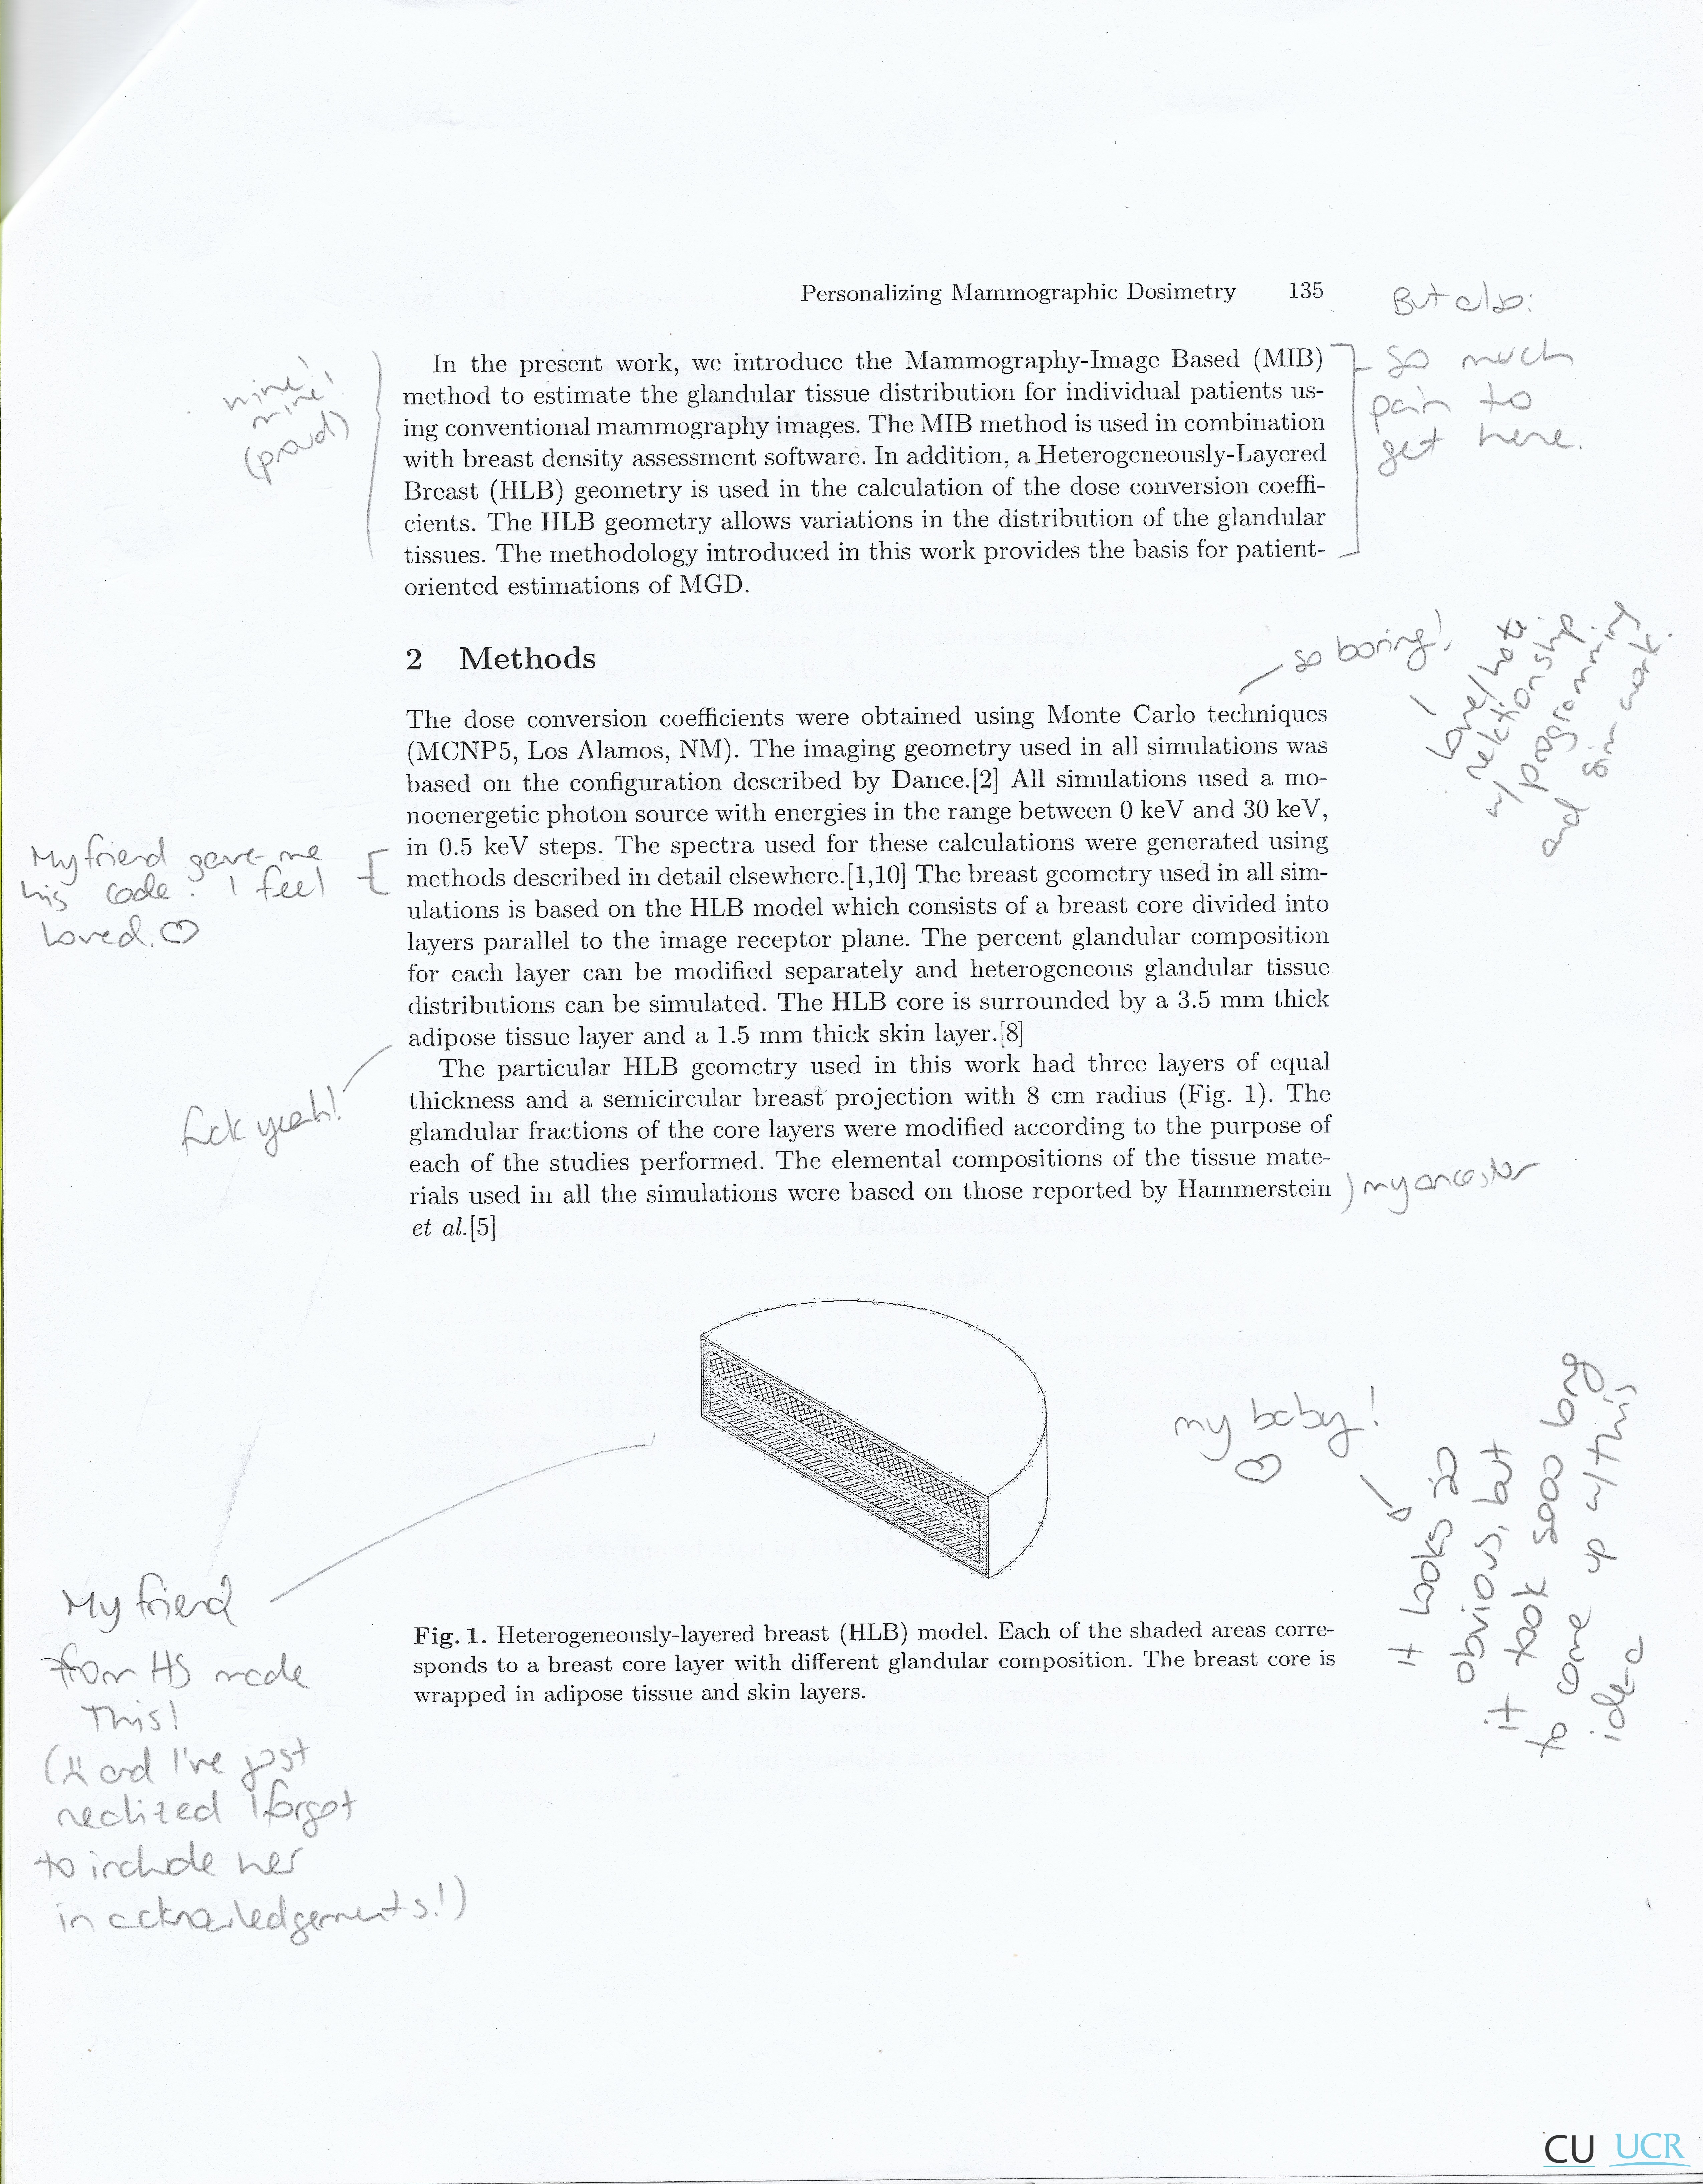 Personalizing Mammographic Dosimetry 135
But also:
so much
pain to
get here.
mine!
mine!
(proud)
In the present work, we introduce the Mammography-Image Based (MIB)
method to estimate the glandular tissue distribution for individual patients us-
ing conventional mammography images. The MIB method is used in combination
with breast density assessment software. In addition, a Heterogeneously-Layered
Breast (HLB) geometry is used in the calculation of the dose conversion coeffi-
cients. The HLB geometry allows variations in the distribution of the glandular
tissues. The methodology introduced in this work provides the basis for patient-
oriented estimations of MGD.
2 Methods
so boring!
love/hate
w/ relationship
programming
and sim work.
The dose conversion coefficients were obtained using Monte Carlo techniques
(MCNP5, Los Alamos, NM). The imaging geometry used in all simulations was
based on the configuration described by Dance.[2] All simulations used a mo-
noenergetic photon source with energies in the range between 0 keV and 30 keV,
in 0.5 keV steps. The spectra used for these calculations were generated using
methods described in detail elsewhere.[1,10] The breast geometry used in all sim-
ulations is based on the HLB model which consists of a breast core divided into
layers parallel to the image receptor plane. The percent glandular composition
for each layer can be modified separately and heterogeneous glandular tissue
distributions can be simulated. The HLB core is surrounded by a 3.5 mm thick
adipose tissue layer and a 1.5 mm thick skin layer.[8]
My friend gave me
his code. I feel
loved. ♡
The particular HLB geometry used in this work had three layers of equal
thickness and a semicircular breast projection with 8 cm radius (Fig. 1). The
glandular fractions of the core layers were modified according to the purpose of
each of the studies performed. The elemental compositions of the tissue mate-
rials used in all the simulations were based on those reported by Hammerstein
et al.[5]
fuck yeah!
my ancestor
my baby!
♡
it looks so
obvious, but
it took sooo long
to come up w/ this
idea
My friend
from HS made
this!
(and I've just
realized I forgot
to include her
in acknowledgements!)
Fig. 1. Heterogeneously-layered breast (HLB) model. Each of the shaded areas corre-
sponds to a breast core layer with different glandular composition. The breast core is
wrapped in adipose tissue and skin layers.
CU UCR